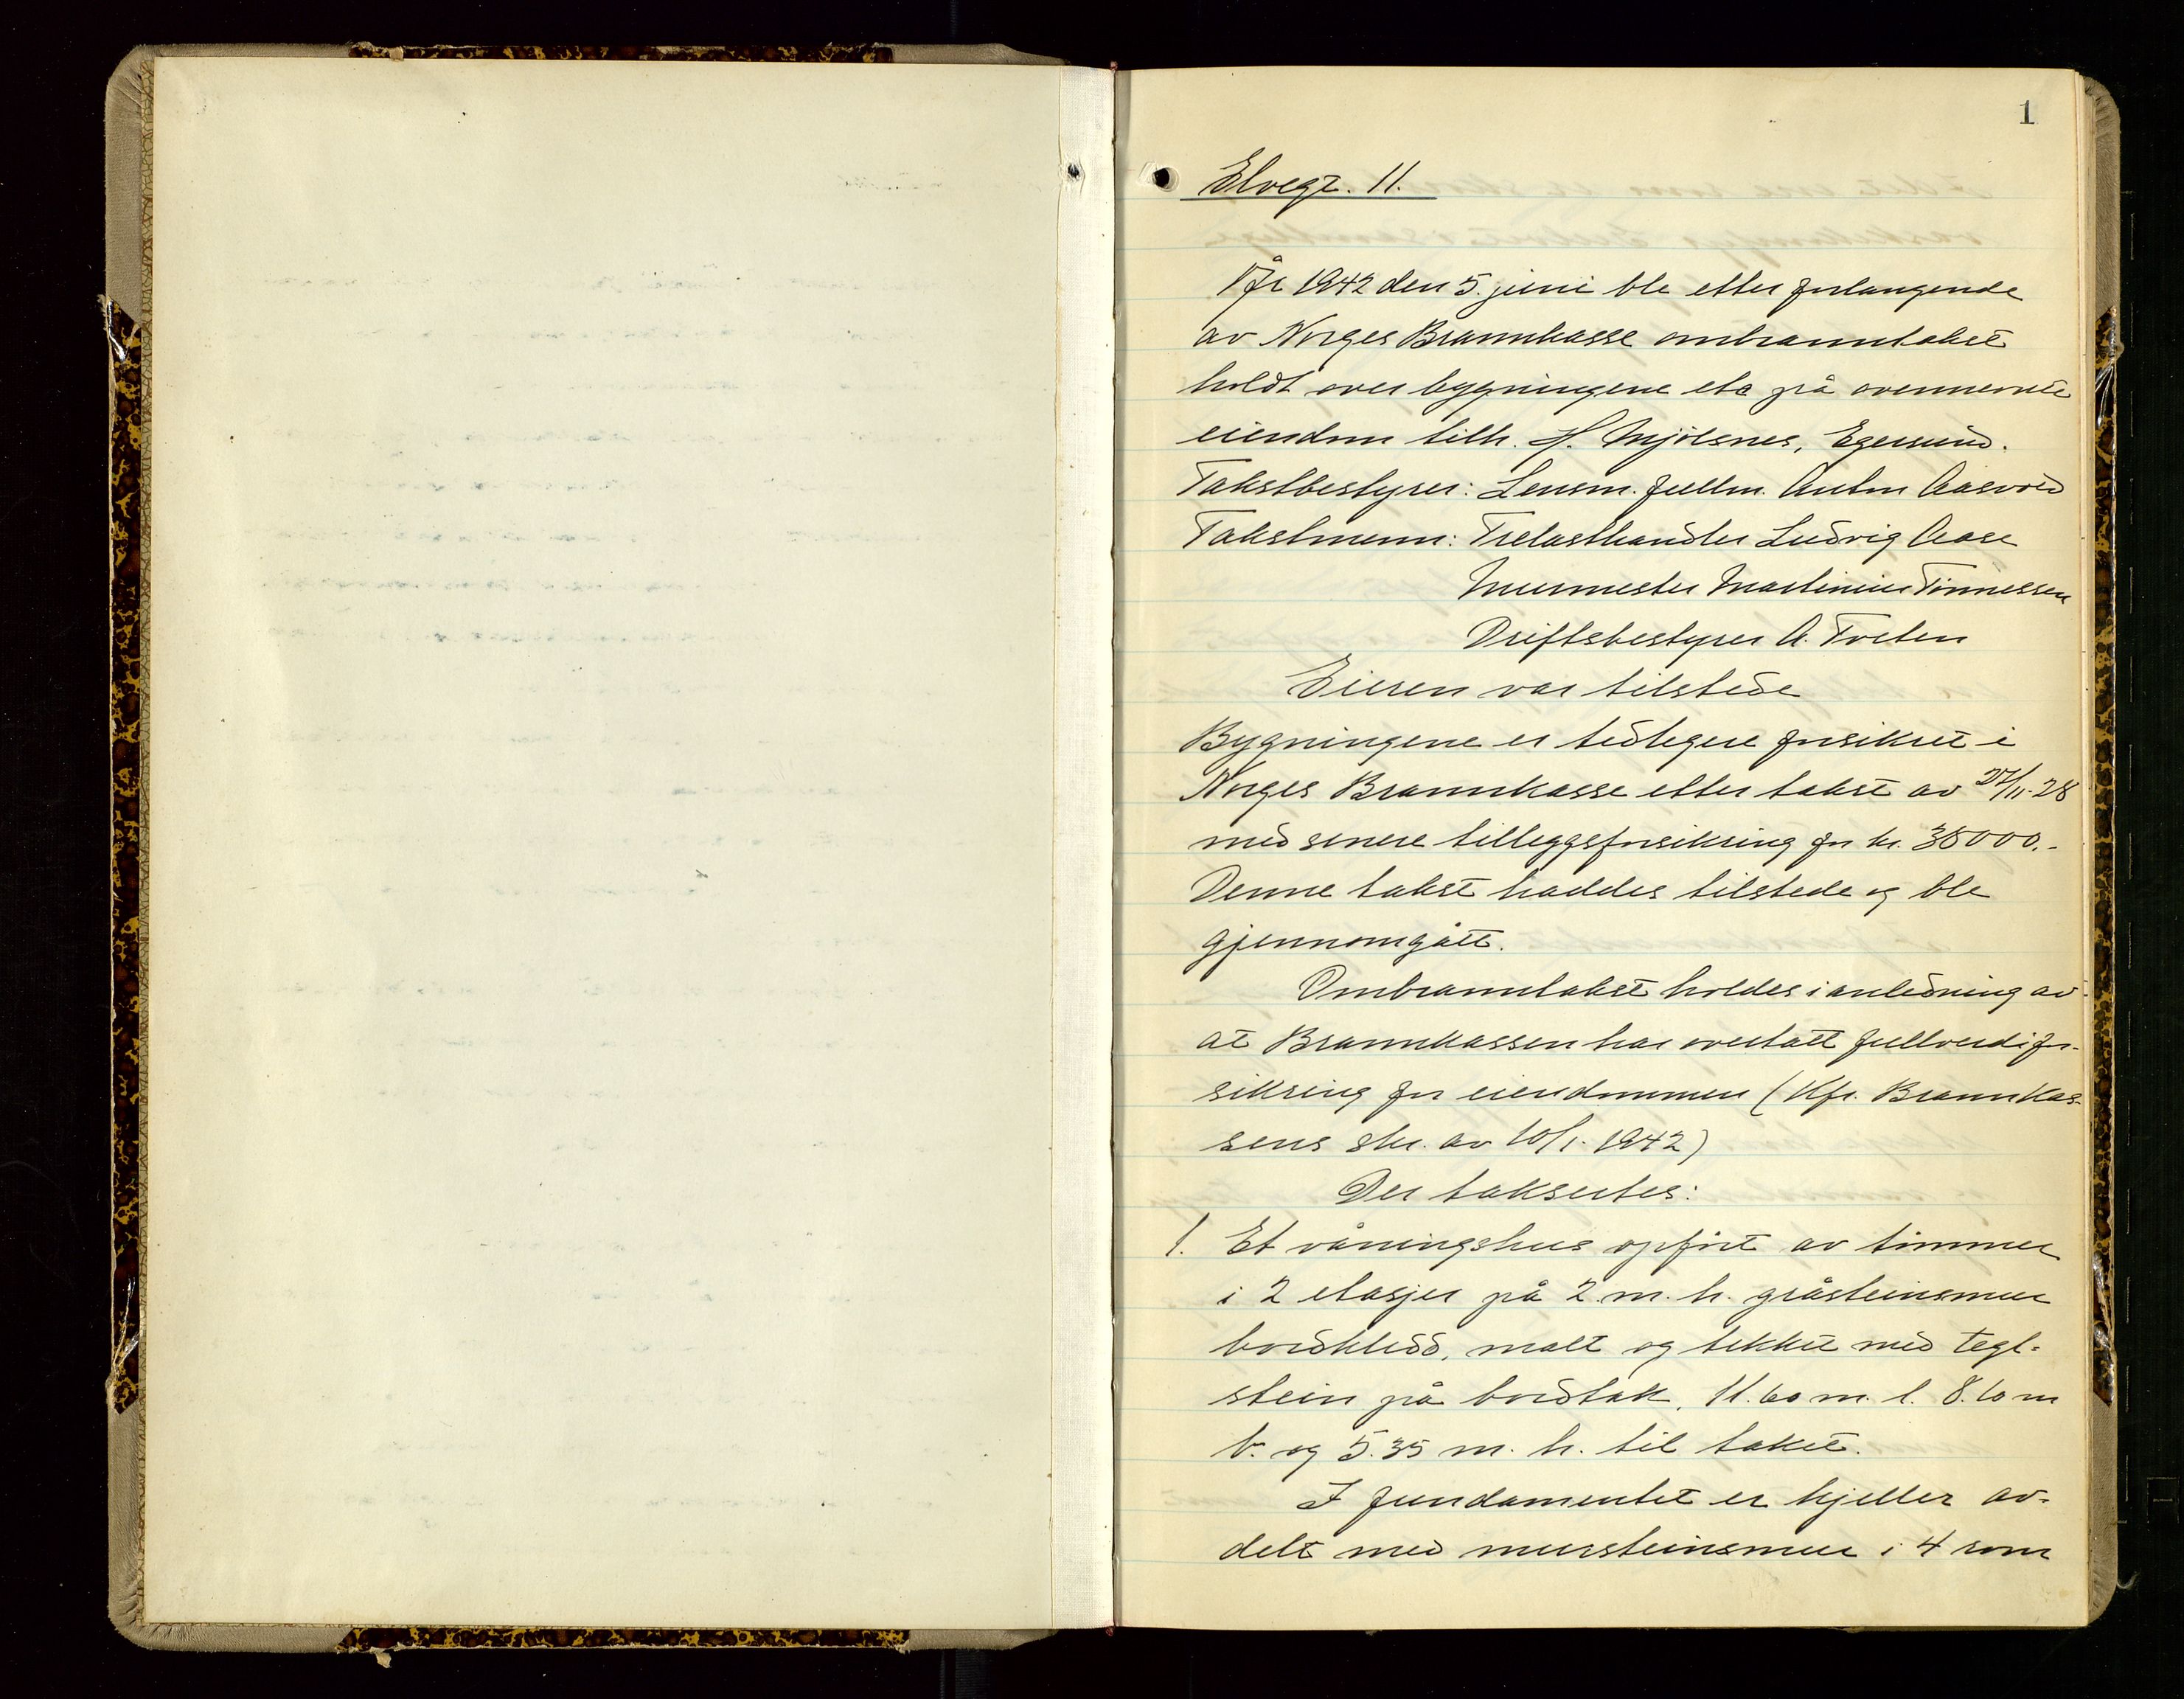 1
Elvegt. 11.
År 1942 den 5. juni ble etter forlangende
av Norges Brannkasse ombranntakst
holdt over bygningene etc på ovennevnte
eiendom tilh. H. Mjølsnes, Egersund.
Takstbestyrer: Lensm. fullm. Anton Aasvold
Takstmenn: Trelasthandler Ludvig Aase
Murmester Martinius Tønnessen
Driftsbestyrer A. Tveten
Eieren var tilstede
Bygningene er tidligere forsikret i
Norges Brannkasse etter takst av 27/11-28
med senere tilleggsforsikring for kr. 35000.-
Denne takst haddes tilstede og ble
gjennomgått.
Ombranntakst holdes i anledning av
at Brannkassen har overtatt fullverdifor-
sikring for eiendommen (Kfr. Brannkas-
sens skr. av 10/1-1942)
Der takseres:
1. Et våningshus opført av tømmer
i 2 etasjer på 2 m. h. gråsteinsmur
bordkledd, malt og tekket med tegl-
stein på bordtak, 11.60 m. l. 8.10 m
b. og 5.35 m. h. til taket.
I fundamentet er kjeller av-
delt med mursteinsmur i 4 rom